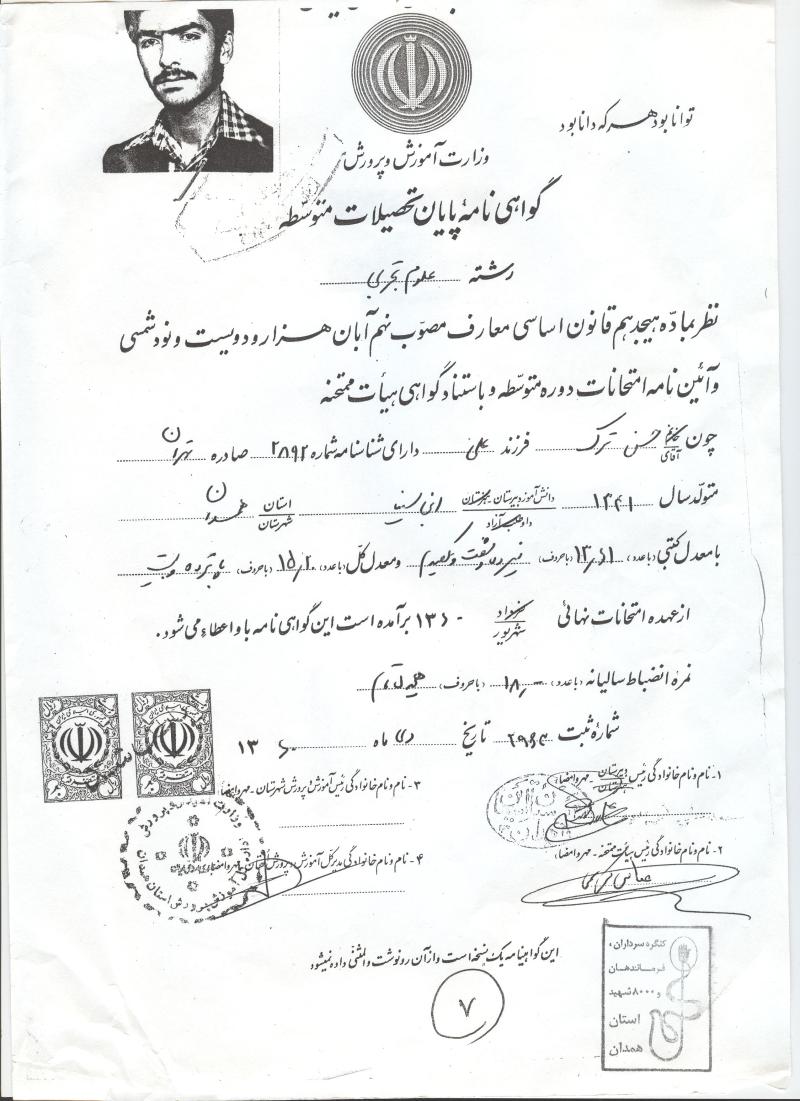 توانا بود هر که دانا بود
وزارت آموزش و پرورش
گواهی نامهٔ پایان تحصیلات متوسّطه
رشته علوم تجربی
نظر بمادّه هیجدهم قانون اساسی معارف مصوّب نهم آبان هزار و دویست و نود شمسی
و آئین نامه امتحانات دوره متوسّطه و باستناد گواهی هیأت ممتحنه
چون آقای حسن ترک فرزند علی دارای شناسنامه شماره ۲۸۹۲ صادره تهران
متولّد سال ۱۳۴۱ دانش آموز دبیرستان ابن سینا استان شهرستان همدان
داوطلب آزاد
با معدل کتبی (با عدد) ۱۳/۶۱ (با حروف) و معدل کل (با عدد) ۱۵/۲۰ (با حروف) پانزده و بیست
از عهده امتحانات نهائی خرداد شهریور ۱۳۶۰ برآمده است این گواهی نامه باو اعطاء می شود.
نمره انضباط سالیانه (با عدد) ۱۸/۰۰ (با حروف) هیجده تمام
شمارهٔ ثبت ۲۹۶۳ تاریخ دی ماه ۱۳۶۰
۱- نام و نام خانوادگی رئیس دبیرستان - مهر و امضاء
۳- نام و نام خانوادگی رئیس آموزش و پرورش شهرستان - مهر و امضاء
۲- نام و نام خانوادگی رئیس هیأت ممتحنه - مهر و امضاء
۴- نام و نام خانوادگی مدیر کل آموزش و پرورش استان - مهر و امضاء
این گواهینامه یک نسخه است و از آن رونوشت و المثنی داده نمیشود
۷
کنگره سرداران،
فرماندهان
و ۸۰۰۰ شهید
استان
همدان